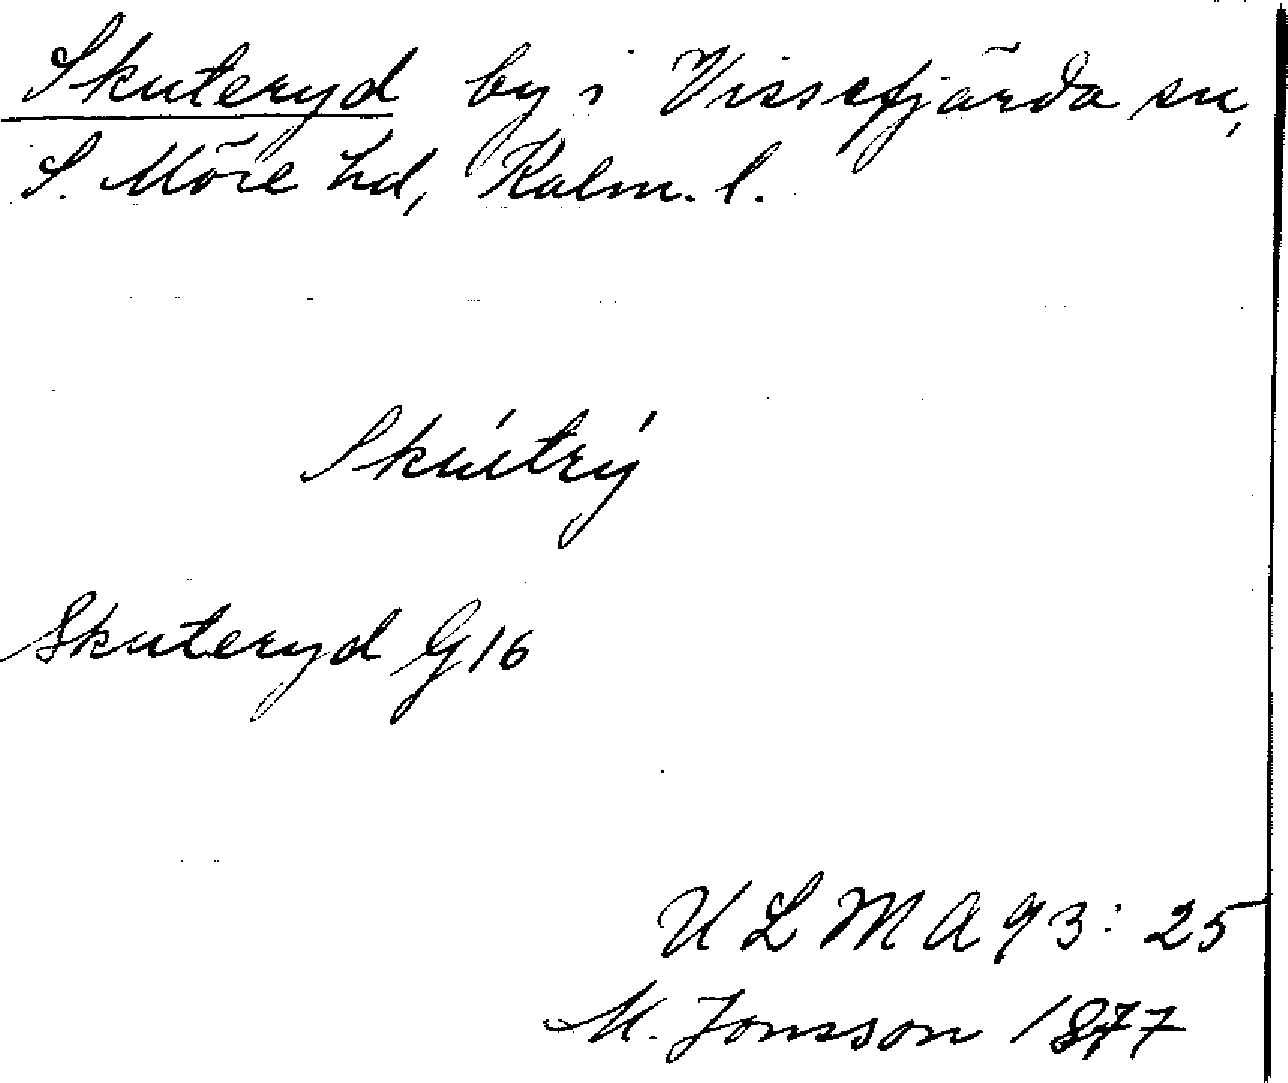 Skuteryd by i Vissefjärda sn,
S. Möre hd, Kalm. l.
Skútrý
Skuteryd G16
ULMA 93:25
M. Jonsson 1877